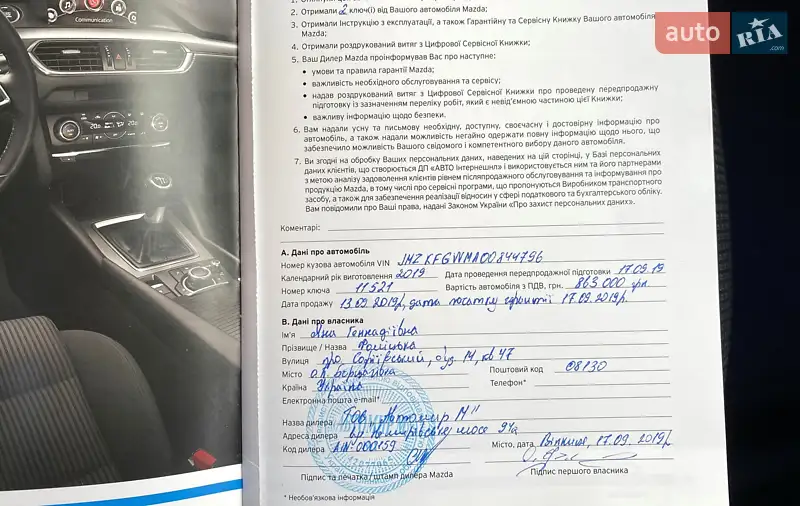 Communication
auto RIA .com
2. Отримали 2 ключ(і) від Вашого автомобіля Mazda;
3. Отримали Інструкцію з експлуатації, а також Гарантійну та Сервісну Книжку Вашого автомобіля Mazda;
4. Отримали роздрукований витяг з Цифрової Сервісної Книжки;
5. Ваш Дилер Mazda проінформував Вас про наступне:
• умови та правила гарантії Mazda;
• важливість необхідного обслуговування та сервісу;
• надав роздрукований витяг з Цифрової Сервісної Книжки про проведену передпродажну
підготовку із зазначенням переліку робіт, який є невід'ємною частиною цієї Книжки;
• важливу інформацію щодо безпеки.
6. Вам надали усну та письмову необхідну, доступну, своєчасну і достовірну інформацію про
автомобіль, а також надали можливість негайно одержати повну інформацію щодо нього, що
забезпечило можливість Вашого свідомого і компетентного вибору даного автомобіля.
7. Ви згодні на обробку Ваших персональних даних, наведених на цій сторінці, у Базі персональних
даних клієнтів, що створюється ДП «АВТО Інтернешнл» і використовується ним та його партнерами
з метою аналізу задоволення клієнтів рівнем післяпродажного обслуговування та інформування про
продукцію Mazda, в тому числі про сервісні програми, що пропонуються Виробником транспортного
засобу, а також для забезпечення реалізації відносин у сфері податкового та бухгалтерського обліку.
Вам повідомили про Ваші права, надані Законом України «Про захист персональних даних».
Коментарі:
А. Дані про автомобіль
Номер кузова автомобіля VIN JMZKFGWMA00844796
Календарний рік виготовлення 2019 Дата проведення передпродажної підготовки 17.09.19
Номер ключа 11521 Вартість автомобіля з ПДВ, грн. 863.000 грн
Дата продажу 13.09.2019р, дата початку гарантії 17.09.2019р.
В. Дані про власника
Ім'я Яна Геннадіївна
Прізвище / Назва
Вулиця 14, кв 47
Місто Поштовий код 08130
Країна Україна Телефон*
Електронна пошта e-mail*
Назва дилера ТОВ „Автомир М"
Адреса дилера шосе 94а
Код дилера Місто, дата Вінниця, 17.09.2019р
Підпис та печатка / штамп дилера Mazda Підпис першого власника
* Необов'язкова інформація